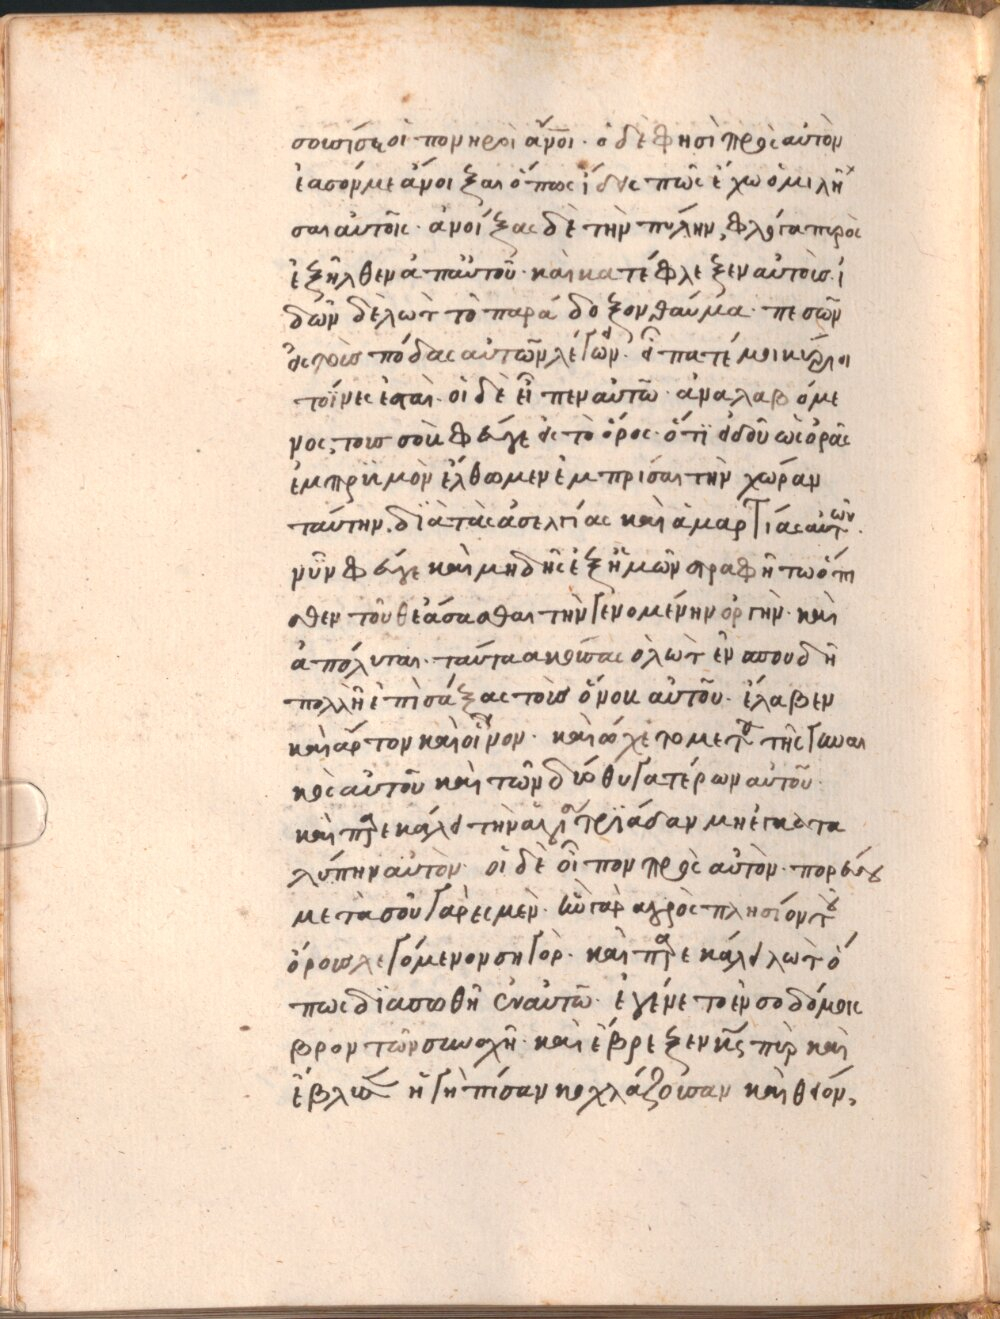 σουσίσιοἱ πονηροὶ ἄνοι· ὁ δὲ φησὶ πρὸς αὐτὸν
ἐασόνμε ἀνοιξαι ὅπως ἴδης πῶς ἔχω ὁμιλῆ
σαι αὐτοῖς· ἀνοίξας δὲ τὴν πύλην, φλόγα πυρὸς
ἐξῆλθεν ἀπ αὐτοῦ· καὶ κατέφλεξεν αὐτούς· ἰ
δὼν δὲ λὼτ τὸ παράδοξον θαῦμα· πεσὼν
εἰς τοὺς πόδας αὐτῶν λέγων· εἴπατέ μοι κύριοι
τοίνες ἐσται· οἱ δὲ εἶπεν αὐτῶ· ἀναλαβόμε
νος, τους σοὺς φεῦγε εἰς τὸ ὄρος· ὅτι ἰδοῦ ὡς ὁρᾶς
ἐμπρισμὸν ἔλθωμεν ἐμπρίσαι τὴν χώραν
ταύτην. διὰ τὰς ἀσελγίας καὶ ἁμαρτίας αὐτῶν.
νῦν φεῦγε καὶ μηδεὶς ἐξ ἡμῶν στραφῆ τω ὄπι
σθεν τοῦ θεάσασθαι τὴν γενομένην ὀργὴν· καὶ
ἀπόλυται· ταῦτα ακούσας ὁ λὼτ ἐν σπουδῆ
πολλῆ ἐπισάξας τοὺς ὄνους αὐτοῦ· ἔλαβεν
καὶ ἄρτον καὶ οἶνον· καὶ ὤχετο μετὰ τῆς γυναι
κὸς αὐτοῦ καὶ τῶν δύο θυγατέρων αὐτοῦ·
καὶ παρεκάλει τὴν ἁγίαν τριάδαν μὴ ἐγκατα
λύπην αὐτὸν· οἱ δὲ εἶπον πρὸς αὐτὸν· πορεύου
μετὰ σοῦ γὰρ ἐσμὲν· ἦν γὰρ ἀγρὸς πλησίον τοῦ
ὄρους λεγόμενον σηγὸρ· καὶ παρεκάλει λὼτ ὅ
πως διασωθῆ ἐν αὐτῶ· ἐγένετο ἐν σοδόμοις
βροντῶν συνοχῆ· καὶ ἔβρεξεν κς πῦρ καὶ
ἔβλυσεν ἡ γῆ πίσαν κοχλάζουσαν καὶ θεῖον,